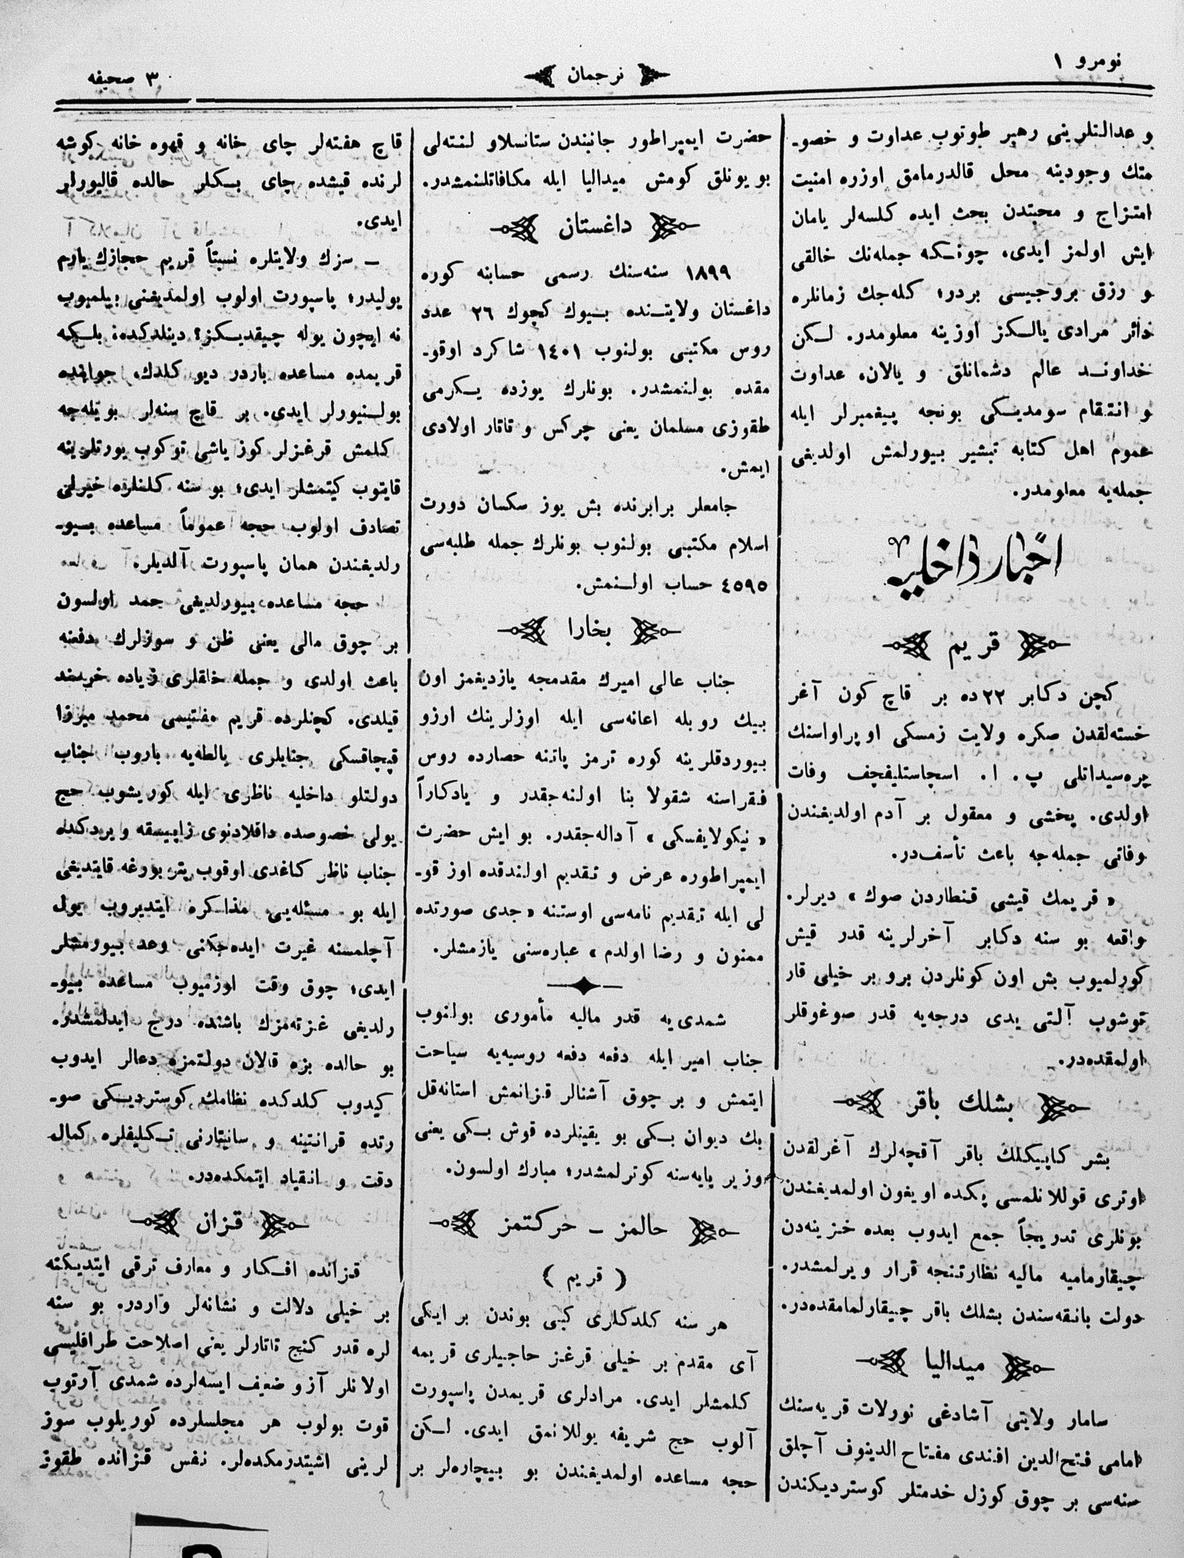 نومرو ١
ترجمان
٣ صحيفه
و عدالتلرينى رهبر طوتوب عداوت و خصو-
متك وجودينه محل قالدرمامق اوزره امنيت
امتزاج و محبتدن بحث ايده كلسه‌لر يامان
ايش اولمز ايدى، چونكه جمله‌نك خالقى
و رزق بروجيسى بردر؛ كله‌جك زمانلره
دائر مرادى يالكز اوزينه معلومدر. لكن
خداوند عالم دشمانلق و يالان، عداوت
و انتقام سومديكى بونجه پيغمبرلر ايله
عموم اهل كتابه تبشير بيورلمش اولديغى
جمله‌يه معلومدر.
اخبار داخليه
قريم
كچن دكابر ٢٢ده بر قاچ كون آغر
خسته‌لقدن صكره ولايت زمسكى اوپراواسنك
پره‌سيداتلى پ. ا. اسچاستليفچف وفات
اولدى. يخشى و معقول بر آدم اولديغندن
وفاتى جمله‌جه باعث تأسف‌در.
« قريمك قيشى قنطاردن صوك » ديرلر.
واقعه بو سنه دكابر آخرلرينه قدر قيش
كورلميوب بش اون كونلردن برو بر خيلى قار
توشوب آلتى يدى درجه‌يه قدر صوغوقلر
اولمقده‌در.
بشلك باقر
بشر كاپيكلك باقر آقچه‌لرك آغرلقدن
اوترى قوللانلمسى پكده اويغون اولمديغندن
بونلرى تدريجاً جمع ايدوب بعده خزينه‌دن
چيقارماميه ماليه نظارتنجه قرار ويرلمشدر.
دولت بانقه‌سندن بشلك باقر چيقارلمامقده‌در.
ميداليا
سامار ولايتى آشادغى نوولات قريه‌سنك
امامى فتح‌الدين افندى مفتاح الدينوف آچلق
سنه‌سى بر چوق كوزل خدمتلر كوسترديكندن
حضرت ايمپراطور جانبندن ستانسلاو لنته‌لى
بويونلق كومش ميداليا ايله مكافاتلنمشدر.
داغستان
١٨٩٩ سنه‌سنك رسمى حسابنه كوره
داغستان ولايتنده بيوك كچوك ٢٦ عدد
روس مكتبى بولنوب ١٤٠١ شاكرد اوقو-
مقده بولنمشدر. بونلرك يوزده يكرمى
طقوزى مسلمان يعنى چركس و تاتار اولادى
ايمش.
جامعلر برابرنده بش يوز سكسان دورت
اسلام مكتبى بولنوب بونلرك جمله طلبه‌سى
٤٥٩٥ حساب اولنمش.
بخارا
جناب عالى اميرك مقدمجه يازديغمز اون
بيك روبله اعانه‌سى ايله اوزلرينك ارزو
بيوردقلرينه كوره ترمز پاتنه حصارده روس
فقراسنه شقولا بنا اولنه‌جقدر و يادكاراً
« نيكولايفسكى » آداله‌جقدر. بو ايش حضرت
ايمپراطوره عرض و تقديم اولندقده اوز قو-
لى ايله تقديم نامه‌سى اوستنه « جدى صورتده
ممنون و رضا اولدم » عباره‌سنى يازمشلر.
شمدى‌يه قدر ماليه مأمورى بولنوب
جناب امير ايله دفعه دفعه روسيه‌يه سياحت
ايتمش و بر چوق آشنالر قزانمش استانه‌قل
بك ديوان بكى بو يقينلرده قوش بكى يعنى
وزير پايه‌سنه كوترلمشدر؛ مبارك اولسون.
حالمز - حركتمز
( قريم )
هر سنه كلدكلرى كبى بوندن بر ايكى
آى مقدم بر خيلى قرغز حاجيلرى قريمه
كلمشلر ايدى. مرادلرى قريمدن پاسپورت
آلوب حج شريفه يوللانمق ايدى. لكن
حجه مساعده اولمديغندن بو بيچاره‌لر بر
قاچ هفته‌لر چاى خانه و قهوه خانه كوشه
لرنده قيشده چاى بكلر حالده قاليورلر
ايدى.
ـ سزك ولايتلره نسبتاً قريم حجازك يارم
يوليدر؛ پاسپورت اولوب اولمديغنى بيلميوب
نه ايچون يوله چيقديكز؟ دينلدكده؛ بلكه
قريمده مساعده باردر ديو كلدك، جوابنده
بولنيورلر ايدى. بر قاچ سنه‌لر بويله‌جه
كلمش قرغزلر كوز ياشى توكوب يورتلرينه
قايتوب كيتمشلر ايدى؛ بو سنه كلنلره خيرلى
تصادف اولوب حجه عموماً مساعده بيو-
رلديغندن همان پاسپورت آلديلر.
حجه مساعده بيورلديغى حمد اولسون
بر چوق مالى يعنى ظن و سوزلرك دفعنه
باعث اولدى و جمله خلقلرى زياده خرسند
قيلدى. كچنلرده قريم مفتيسى محمد ميرزا
قپچاقسكى جنابلرى يالطه‌يه باروب جناب
دولتلو داخليه ناظرى ايله كوريشوب حج
يولى خصوصده داقلادنوى زاپيسقه ويردكده
جناب ناظر كاغدى اوقوب پتربورغه قايتديغى
ايله بو مسئله‌يى مذاكره ايتديروب يول
آچلمسنه غيرت ايده‌جكنى وعد بيورمشلر
ايدى؛ چوق وقت اوزنميوب مساعده بيو-
رلديغى غزته‌مزك باشنده درج ايدلمشدر.
بو حالده بزه قالان دولتمزه دعالر ايدوب
كيدوب كلدكده نظامك كوسترديكى صو-
رتده قرانتينه و سانيتارنى تكليفلره كمال
دقت و انقياد ايتمكده‌در.
قزان
قزانده افكار و معارف ترقى ايتديكنه
بر خيلى دلالت و نشانه‌لر واردر. بو سنه
لره قدر كنج تاتارلر يعنى اصلاحت طرافليسى
اولانلر آز و ضعيف ايسه‌لرده شمدى آرتوب
قوت بولوب هر مجلسلرده كوريلوب سوز
لرينى اشيتدرمكده‌لر. نفس قزانده طقوز